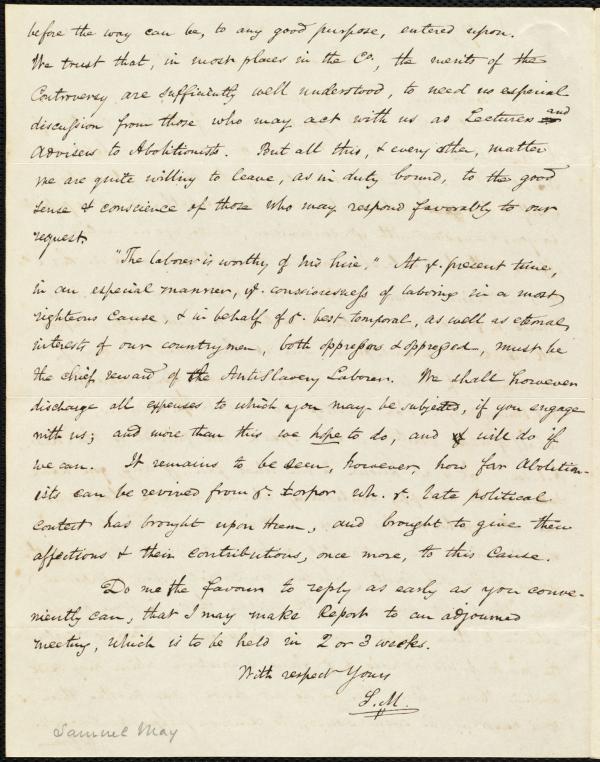 before the way can be, to any good purpose, entered upon.
We trust that, in most places in the Co., the merits of the
Controversy are sufficiently well understood, to need no especial
discussion from those who may act with us as Lecturers and
Advisers to Abolitionists. But all this, & every other, matter
we are quite willing to leave, as in duty bound, to the good
sense & conscience of those who may respond favorably to our
request.
"The laborer is worthy of his hire." At ye. present time,
in an especial manner, ye. consciousness of laboring in a most
righteous Cause, & in behalf of ye. best temporal, as well as eternal,
interests of our countrymen, both oppressors & oppressed, must be
the chief reward of the AntiSlavery Laborer. We shall however
discharge all expenses to which you may be subjected, if you engage
with us; and more than this we hope to do, and will do if
we can. It remains to be seen, however, how far Abolition-
ists can be revived from ye. torpor wh. ye. late political
contest has brought upon them, and brought to give their
affections & their contributions, once more, to this Cause.
Do me the favour to reply as early as you conve-
niently can, that I may make Report to an adjourned
meeting, which is to be held in 2 or 3 weeks.
With respect Yours
S. M.
Samuel May